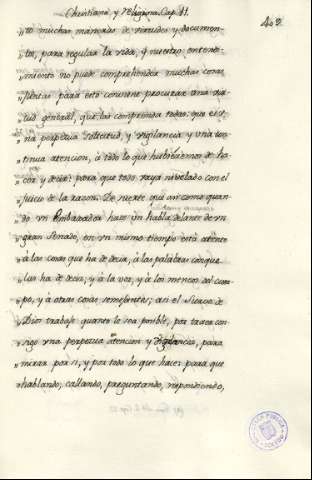 Christiana, y Religiosa. Cap. 11.
409
"to muchas maneras de virtudes y documen-
"tos, para regular la vida, y nuestro entendi-
"miento no puede comprehender muchas cosas
"juntas para esto conviene procurar una vir-
"tud general, que las comprenda todas, que es v-
"na perpetua solicitud, y vigilancia y una con-
"tinua atencion, à todo lo que hubieremos de ha-
"cer y decir: para que todo vaya nivelado con el
"juicio de la razon. De suerte que asi como quan-
"do un Embaxador hace un habla delante de un
"gran Senado, en un mismo tiempo està atento
"à las cosas que ha de decir, à las palabras con que
"las ha de decir, y à la voz, y à los meneos del cuer-
"po, y à otras cosas semejantes; asi el Siervo de
"Dios trabaje quanto le sea posible, por traer con-
"sigo una perpetua atencion y vigilancia, para
"mirar por si, y por todo lo que hace: para que
"hablando, callando, preguntando, respondiendo,